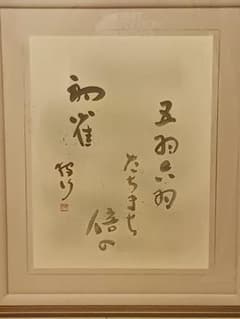 五羽六羽
たちまち
倍の
初雀